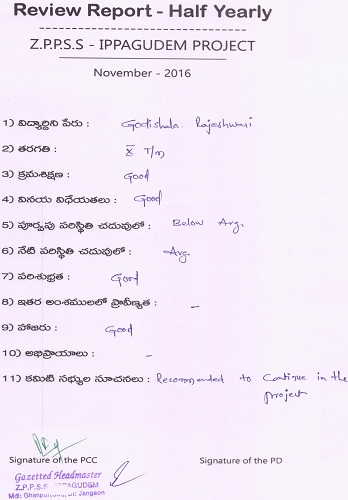 Review Report - Half Yearly
Z.P.P.S.S - IPPAGUDEM PROJECT
November - 2016
1) విద్యార్థిని పేరు : Godishala Rajeshwari
2) తరగతి : X T/m
3) క్రమశిక్షణ : Good
4) వినయ విధేయతలు : Good
5) పూర్వపు పరిస్థితి చదువులో : Below Avg.
6) నేటి పరిస్థితి చదువులో : Avg.
7) పరిశుభ్రత : Good
8) ఇతర అంశములలో ప్రావీణ్యత : -
9) హాజరు : Good
10) అభిప్రాయాలు : -
11) కమిటి సభ్యుల సూచనలు : Recommended to Continue in the
project
Signature of the PCC Signature of the PD
Gazetted Headmaster
Z.P.P.S.S IPPAGUDEM
Mdl: Ghanpur Dt: Jangaon